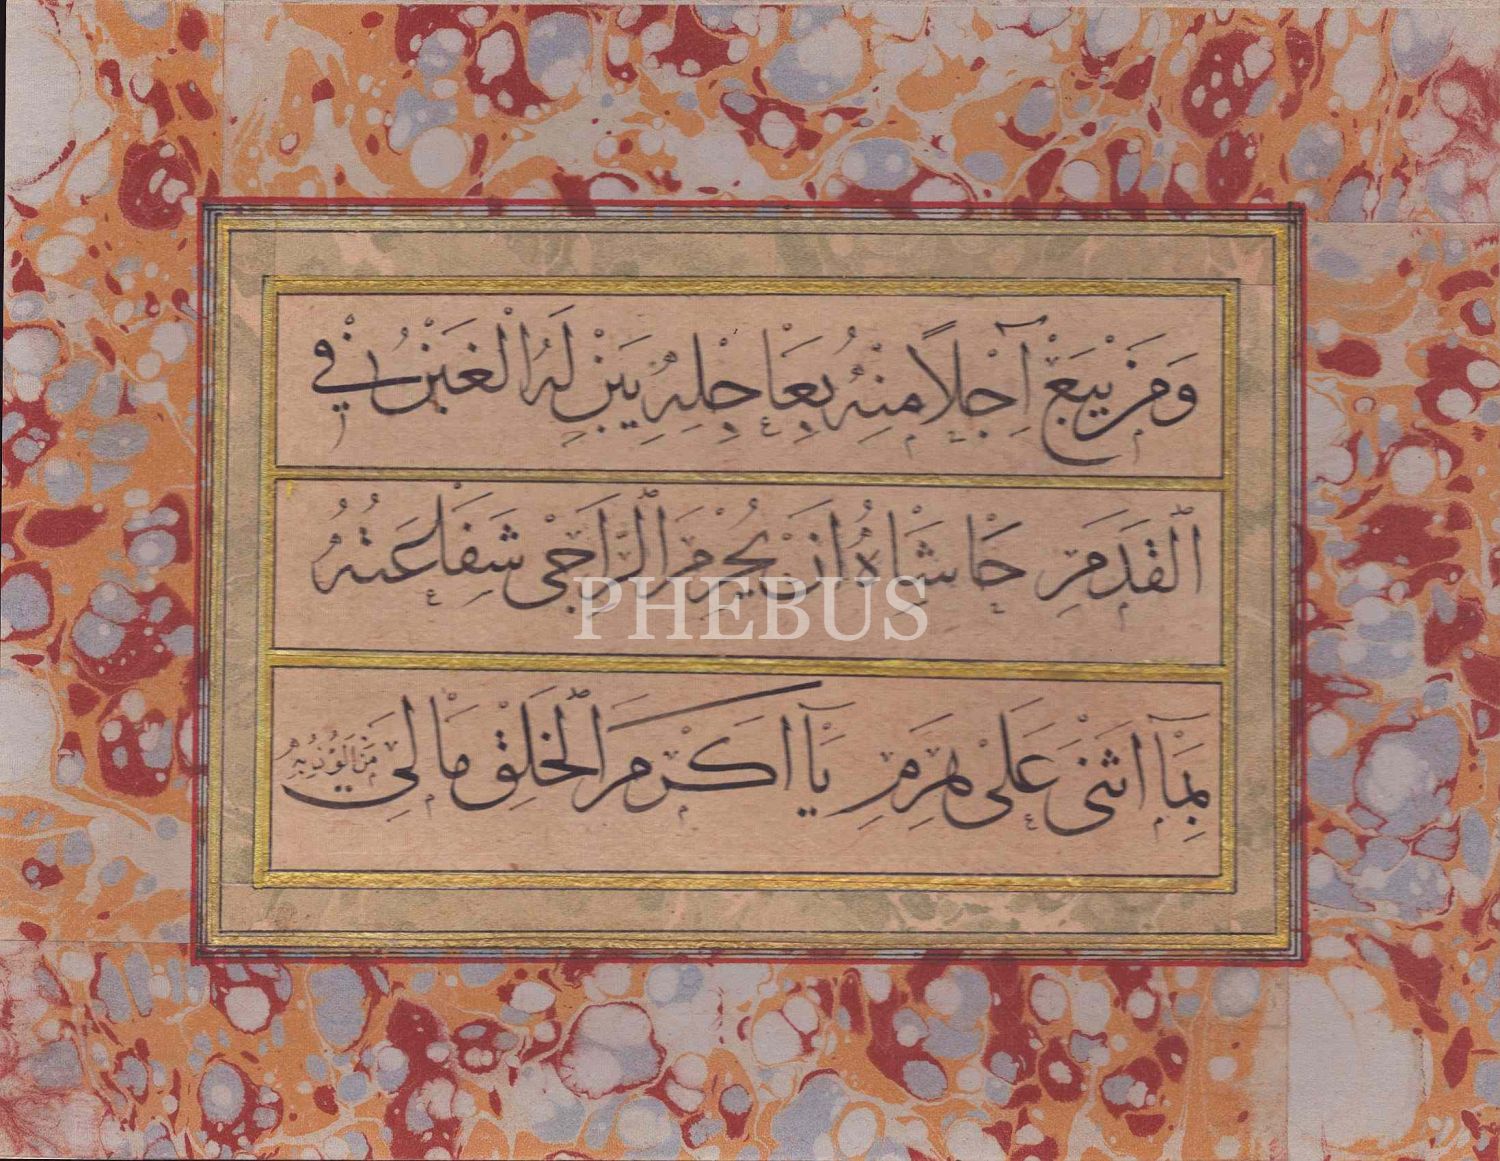 وَمَنْ يَبِعْ آجِلاً مِنْهُ بِعَاجِلِهِ يَبِنْ لَهُ الْغَبْنُ فِي
الْقَدَمِ حَاشَاهُ اَنْ يُحْرِمَ الرَّاجِىْ شَفَاعَتُهُ
PHEBUS
بِمَآ اثْنَىٰ عَلَى هَرِمِ يَآ اَكْرَمَ الْخَلْقِ مَالِي مَنْ اَلُوْذُ بِهِ